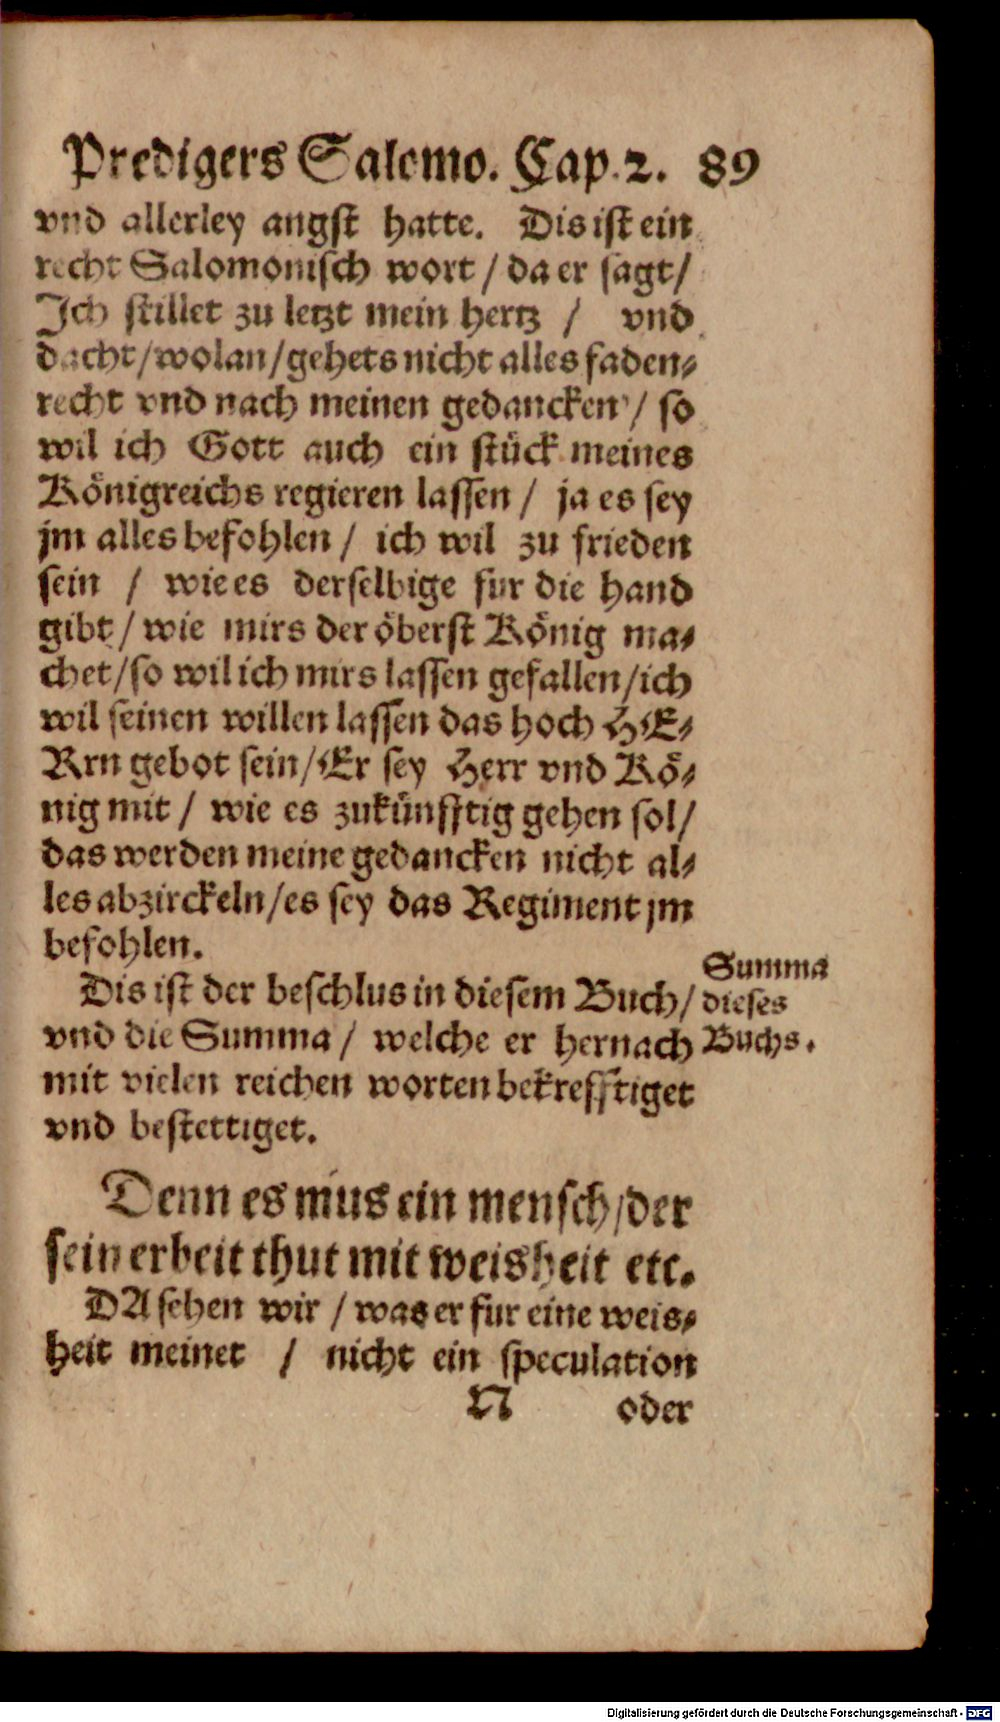 Predigers Salomo. Cap.2. 89
vnd allerley angst hatte. Dis ist ein
recht Salomonisch wort / da er sagt /
Ich stillet zu letzt mein hertz / vnd
dacht / wolan / gehets nicht alles faden-
recht vnd nach meinen gedancken / so
wil ich Gott auch ein stück meines
Königreichs regieren lassen / ja es sey
jm alles befohlen / ich wil zu frieden
sein / wie es derselbige fur die hand
gibt / wie mirs der öberst König ma-
chet / so wil ich mirs lassen gefallen / ich
wil seinen willen lassen das hoch HE-
Rrn gebot sein / Er sey Herr vnd Kö-
nig mit / wie es zukünfftig gehen sol /
das werden meine gedancken nicht al-
les abzirckeln / es sey das Regiment jm
befohlen.
Dis ist der beschlus in diesem Buch /
vnd die Summa / welche er hernach
mit vielen reichen worten bekrefftiget
vnd bestettiget.
Summa
dieses
Buchs.
Denn es mus ein mensch / der
sein erbeit thut mit weisheit etc.
DA sehen wir / was er fur eine weis-
heit meinet / nicht ein speculation
N oder
Digitalisierung gefördert durch die Deutsche Forschungsgemeinschaft - DFG